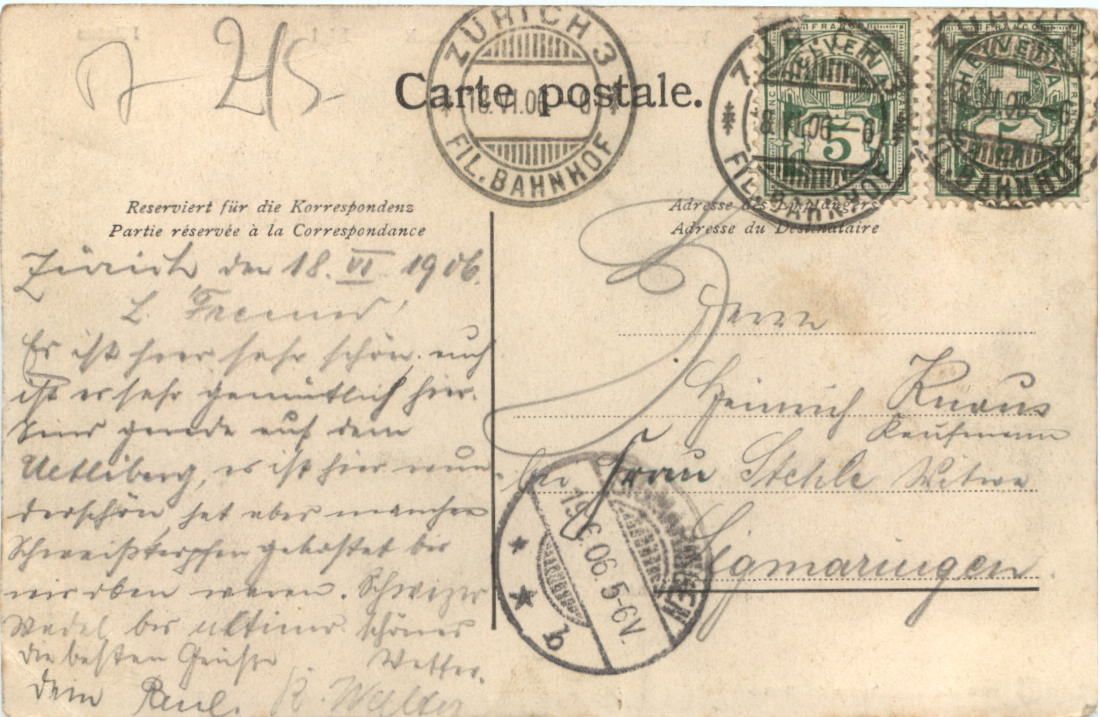 2/5
ZÜRICH 3
18.VI.06 – 6
FIL. BAHNHOF
Carte postale.
FRANCO
HELVETIA
5
ZÜRICH 3
18.VI.06 – 6
FIL. BAHNHOF
HELVETIA
5
VI.06 – 6
BAHNHOF
Reserviert für die Korrespondenz
Partie réservée à la Correspondance
Adresse des Empfängers
Adresse du Destinataire
Zürich den 18. VI 1906.
L. Freund!
Es ist hier sehr schön, auch
ist er sehr gemütlich hier.
Sind gerade auf dem
Uetliberg, es ist hier wun
derschön, hat aber manchen
Schweißtropfen gekostet bis
wir oben waren. Schweizer
bis schönes
die besten Grüße Wetter.
dein Paul. R. Walter
Herrn
Heinrich Knaus
Kaufmann
bei Frau Stehle Witwe
Sigmaringen
SIGMARINGEN
19.6.06.5-6V.
b